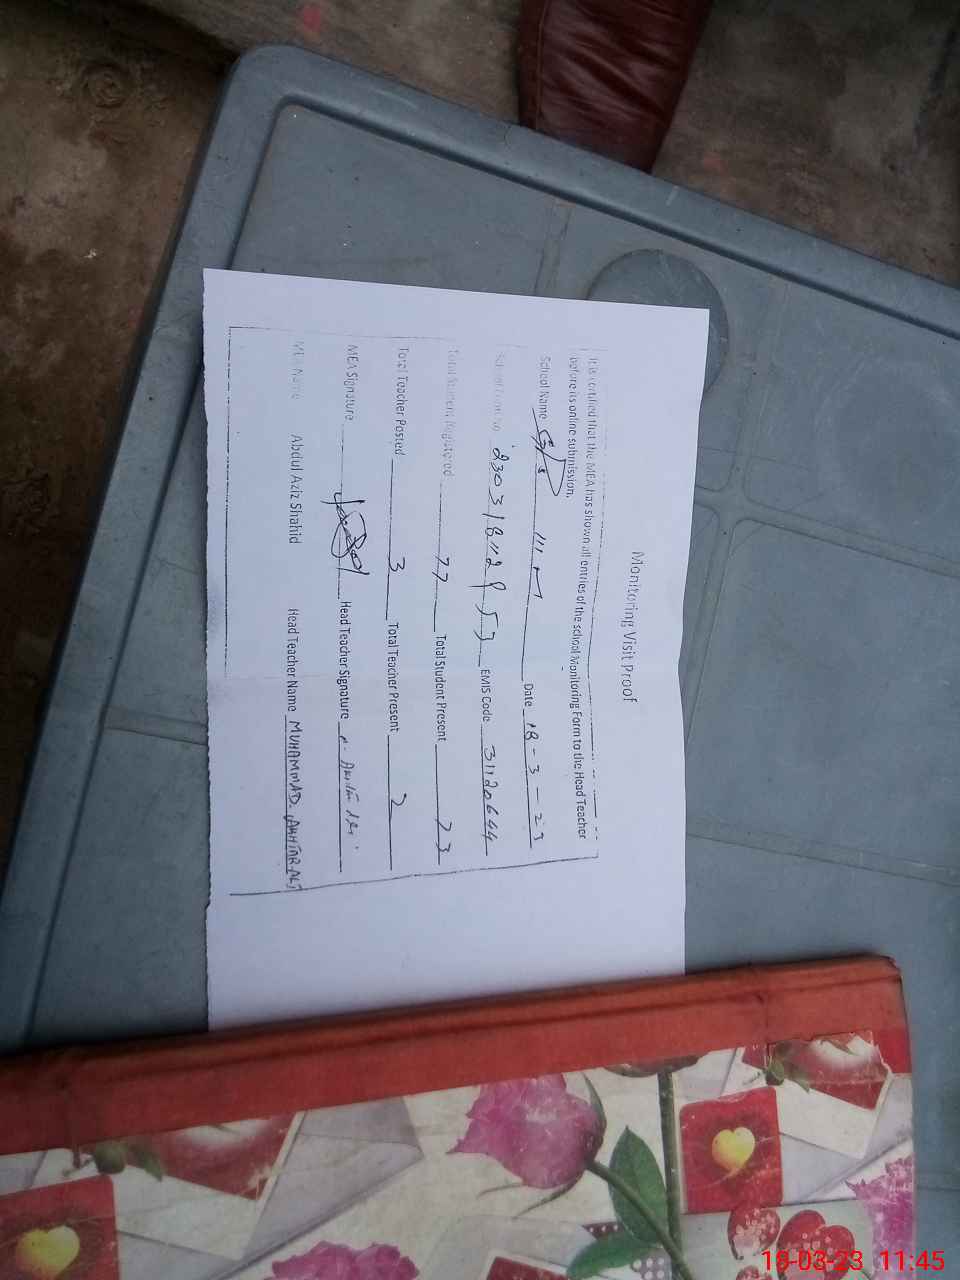 Monitoring Visit Proof
It is certified that the MEA has shown all entries of the school Monitoring Form to the Head Teacher
before its online submission.
School Name GPS Date 18-3-23
School Form No 230318112953 EMIS Code 31120644
Total Student Registered 77 Total Student Present 73
Total Teacher Posted 3 Total Teacher Present 2
MEA Signature Head Teacher Signature
MEA Name Abdul Aziz Shahid Head Teacher Name MUHAMMAD. AKHTAR ALI
18-03-23 11:45